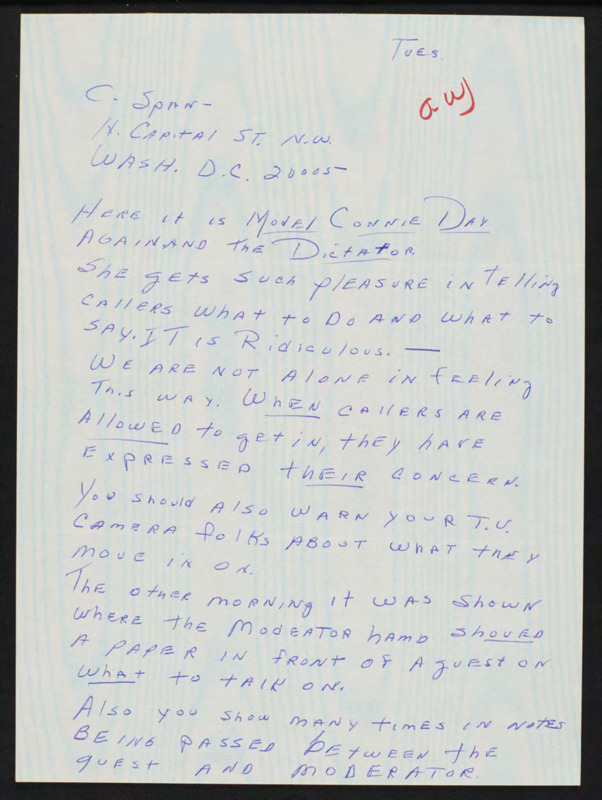 TUES.
aws
C. SPAN-
N. CAPITAL ST. N.W.
WASH. D.C. 20005-
HERE IT IS MODEL CONNIE DAY
AGAIN AND THE DICTATOR
SHE GETS SUCH PLEASURE IN TELLING
CALLERS WHAT TO DO AND WHAT TO
SAY. IT IS RIDICULOUS. —
WE ARE NOT ALONE IN FEELING
THIS WAY. WHEN CALLERS ARE
ALLOWED TO GET IN, THEY HAVE
EXPRESSED THEIR CONCERN.
YOU SHOULD ALSO WARN YOUR T.V.
CAMERA FOLKS ABOUT WHAT THEY
MOVE IN ON.
THE OTHER MORNING IT WAS SHOWN
WHERE THE MODEATOR HAND SHOVED
A PAPER IN FRONT OF A GUEST ON
WHAT TO TALK ON.
ALSO YOU SHOW MANY TIMES IN NOTES
BEING PASSED BETWEEN THE
GUEST AND MODERATOR.